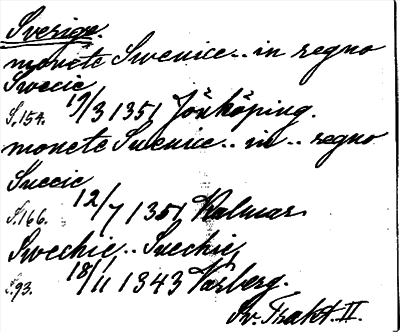 Sverige.
monete Swenice.. in regno
Swecie
S.154. 19/3 1351 Jönköping.
monete Suenice.. in.. regno
Suecie
S.166. 12/7 1351 Kalmar
Swechie.. Suechie,
S.93. 18/11 1343 Varberg.
Sv. Trakt. II.